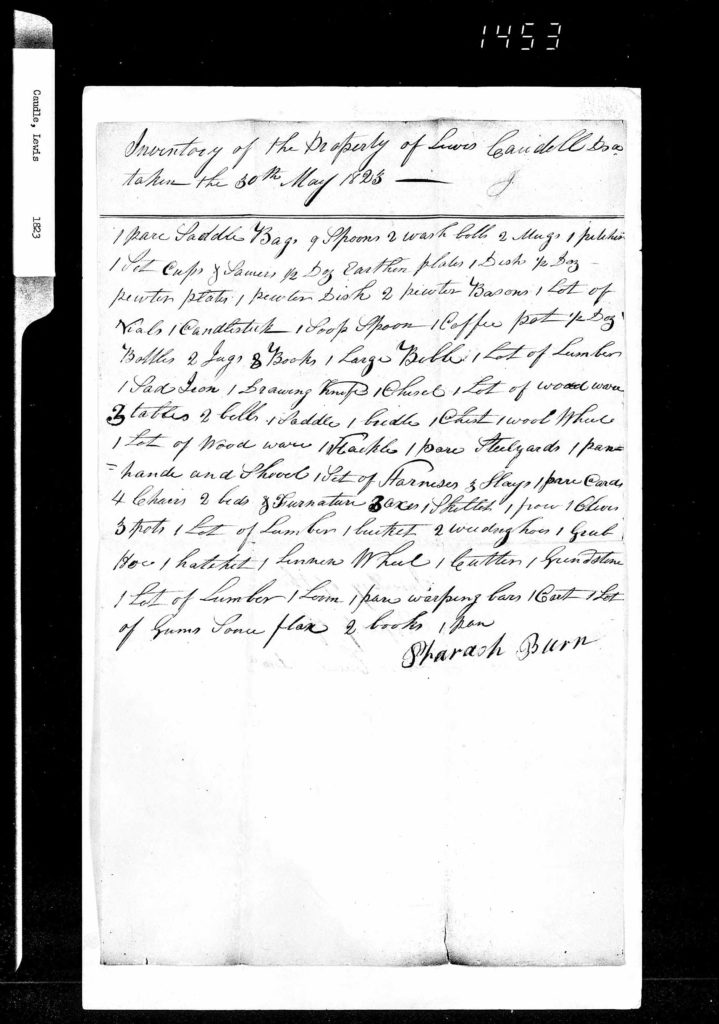 1453
Caudle, Lewis 1823
Inventory of the Property of Lewis Caudell Dsa
taken the 30th May 1823
1 pare Saddle Bags 9 Spoons 2 wash bolls 2 Mugs 1 pitcher
1 Set Cups & Sawers ½ Doz Earthen plates 1 Dish ½ Doz
pewter plates 1 pewter Dish 2 pewter Basons 1 Lot of
Vials 1 Candlestick 1 Soop Spoon 1 Coffee pot ½ Doz
Bottles 2 Jugs 8 Books 1 Large Bible 1 Lot of Lumber
1 Sad Iron 1 Drawing Knife 1 Chisel 1 Lot of wood ware
2 tables 2 bells 1 Saddle 1 bridle 1 Chest 1 wool Wheel
1 Lot of Wood ware 1 Hackle 1 pare Steelyards 1 pan
=hande and Shovel 1 Set of Harneses & Slays 1 pare Cards
4 Chares 2 beds & Furnature 3 axes 1 Skillet 1 1 Clevis
3 pots 1 Lot of Lumber 1 bucket 2 weeding hoes 1 Grub
Hoe 1 hatchet 1 Linnen Wheel 1 Cutter 1 Grindstone
1 Lot of Lumber 1 Loom 1 pare warping bars 1 Cart 1 Lot
of Gums Some flax 2 books 1 pan
Pharaoh Burn